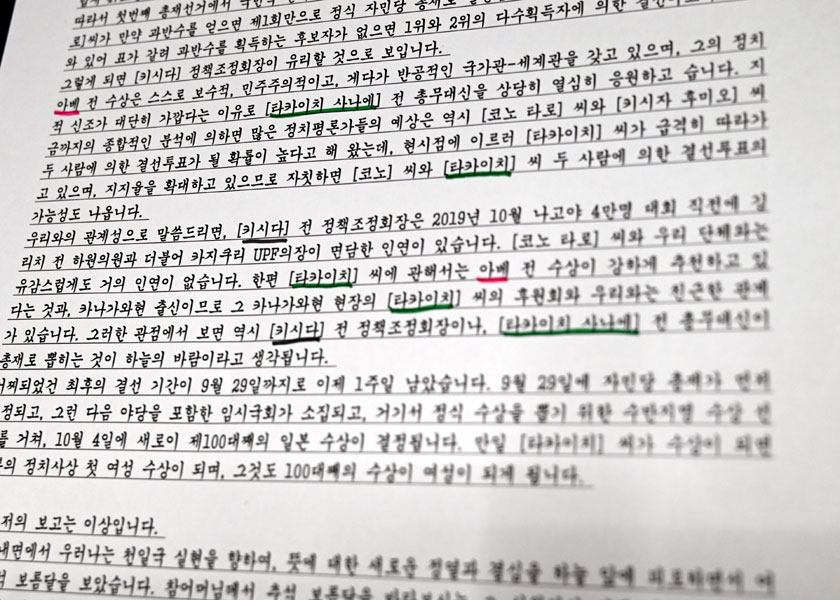 따라서 첫번째 총재선거에서
로]씨가 만약 과반수를 얻으면 제1회만으로 정식 자민당 총재로
와 있어 표가 갈려 과반수를 획득하는 후보자가 없으면 1위와 2위의 다수획득자에 의한
그렇게 되면 [키시다] 정책조정회장이 유리할 것으로 보입니다.
아베 전 수상은 스스로 보수적, 민주주의적이고, 게다가 반공적인 국가관-세계관을 갖고 있으며, 그의 정치
적 신조가 대단히 가깝다는 이유로 [타카이치 사나에] 전 총무대신을 상당히 열심히 응원하고 습니다. 지
금까지의 종합적인 분석에 의하면 많은 정치평론가들의 예상은 역시 [코노 타로] 씨와 [키시자 후미오] 씨
두 사람에 의한 결선투표가 될 확률이 높다고 해 왔는데, 현시점에 이르러 [타카이치] 씨가 급격히 따라가
고 있으며, 지지율을 확대하고 있으므로 자칫하면 [코노] 씨와 [타카이치] 씨 두 사람에 의한 결선투표의
가능성도 나옵니다.
우리와의 관계성으로 말씀드리면, [키시다] 전 정책조정회장은 2019년 10월 나고야 4만명 대회 직전에 깅
리치 전 하원의원과 더불어 카지쿠리 UPF의장이 면담한 인연이 있습니다. [코노 타로] 씨와 우리 단체와는
유감스럽게도 거의 인연이 없습니다. 한편 [타카이치] 씨에 관해서는 아베 전 수상이 강하게 추천하고 있
다는 것과, 카나가와현 출신이므로 그 카나가와현 현장의 [타카이치] 씨의 후원회와 우리와는 친근한 관계
가 있습니다. 그러한 관점에서 보면 역시 [키시다] 전 정책조정회장이나, [타카이치 사나에] 전 총무대신이
총재로 뽑히는 것이 하늘의 바람이라고 생각됩니다.
어찌되었건 최후의 결선 기간이 9월 29일까지로 이제 1주일 남았습니다. 9월 29일에 자민당 총재가
정되고, 그런 다음 야당을 포함한 임시국회가 소집되고, 거기서 정식 수상을 뽑기 위한 수반지명
를 거쳐, 10월 4일에 새로이 제100대째의 일본 수상이 결정됩니다. 만일 [타카이치] 씨가 수상이 되면
의 정치사상 첫 여성 수상이 되며, 그것도 100대째의 수상이 여성이 되게 됩니다.
저의 보고는 이상입니다.
내면에서 우러나는 천일국 실현을 향하여, 뜻에 대한 새로운 정열과 결심을 하늘 앞에
보름달을 보았습니다. 참어머님께서 추석 보름달을